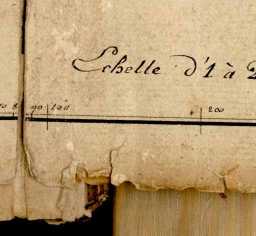 Echelle d'1 à 2
90 100 200